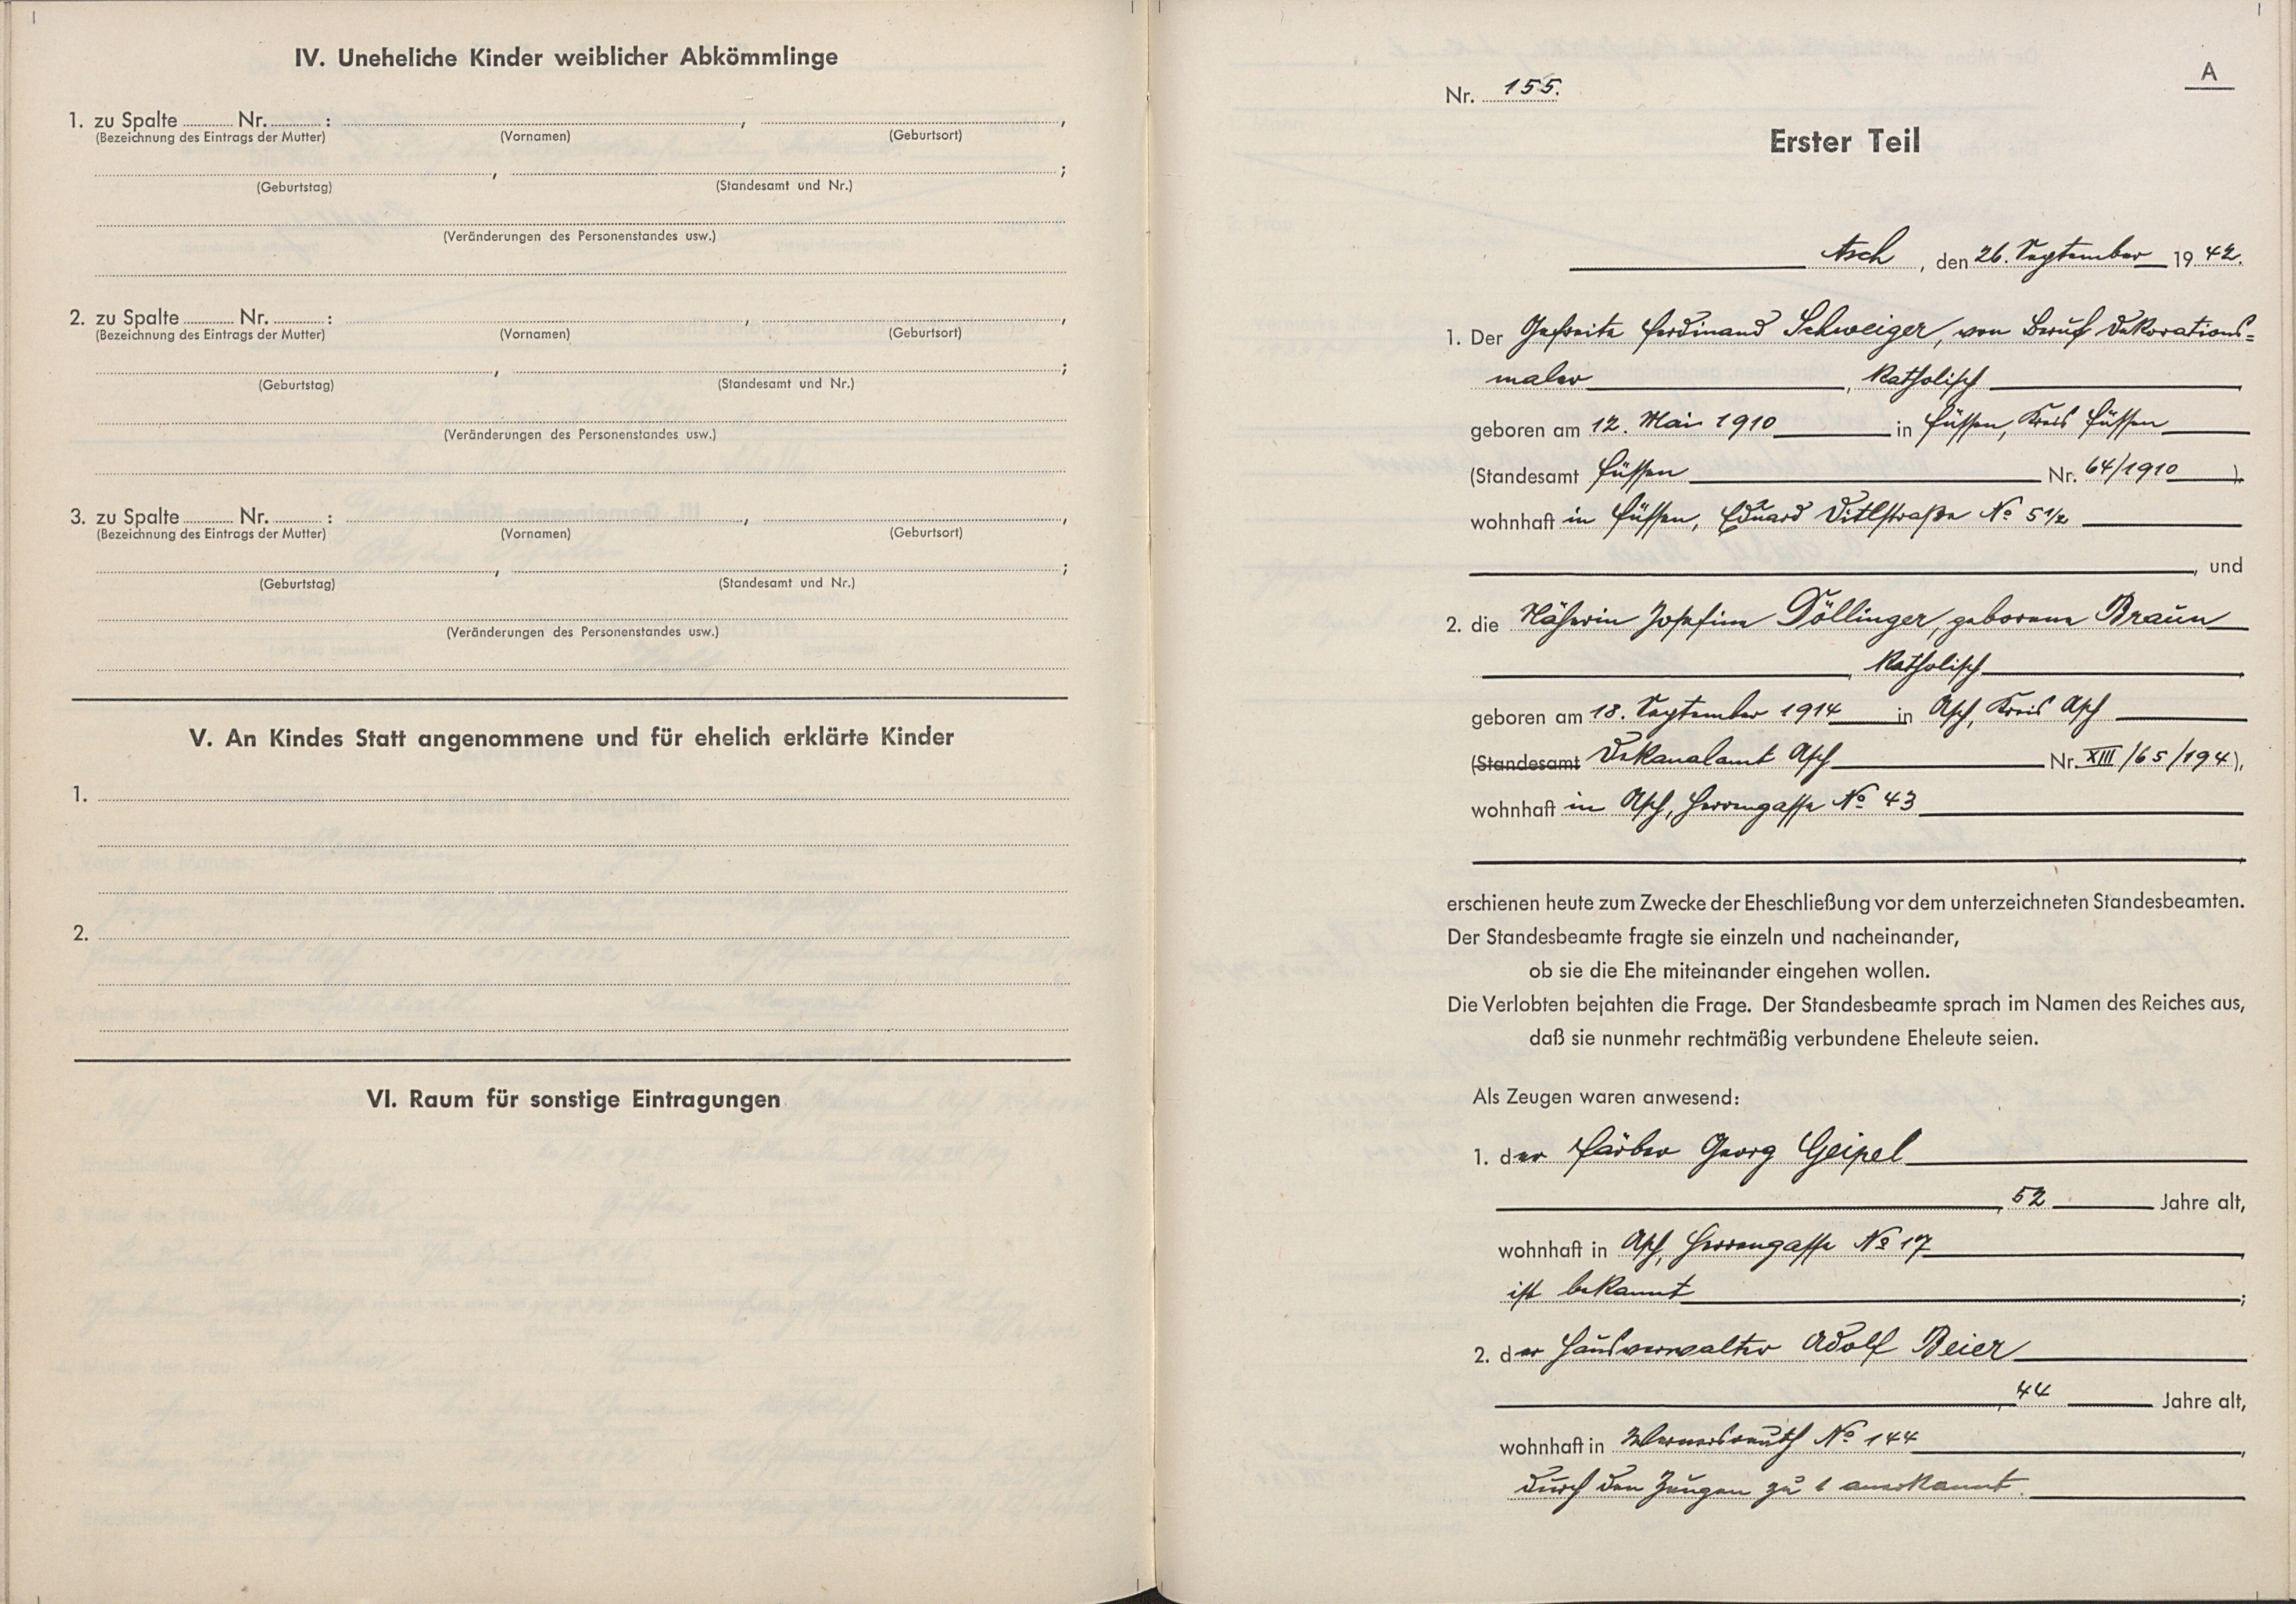 IV. Uneheliche Kinder weiblicher Abkömmlinge
1. zu Spalte Nr. : , ,
(Bezeichnung des Eintrags der Mutter) (Vornamen) (Geburtsort)
, ;
(Geburtstag) (Standesamt und Nr.)
(Veränderungen des Personenstandes usw.)
2. zu Spalte Nr. : , ,
(Bezeichnung des Eintrags der Mutter) (Vornamen) (Geburtsort)
, ;
(Geburtstag) (Standesamt und Nr.)
(Veränderungen des Personenstandes usw.)
3. zu Spalte Nr. : , ,
(Bezeichnung des Eintrags der Mutter) (Vornamen) (Geburtsort)
, ;
(Geburtstag) (Standesamt und Nr.)
(Veränderungen des Personenstandes usw.)
V. An Kindes Statt angenommene und für ehelich erklärte Kinder
1.
2.
VI. Raum für sonstige Eintragungen
A
Nr. 155.
Erster Teil
Asch, den 26. September 1942.
1. Der Gefreite Ferdinand Schweiger, von Beruf Dekorations=
maler, katholisch
geboren am 12. Mai 1910 in Füssen, Kreis Füssen
(Standesamt Füssen Nr. 64/1910),
wohnhaft in Füssen, Eduard Dietlstraße No 5 1/2
, und
2. die Näherin Josefine Döllinger, geborene Braun
, katholisch
geboren am 18. September 1914 in Asch, Kreis Asch
(Standesamt Dekanalamt Asch Nr. XIII/65/194),
wohnhaft in Asch, Herrengasse No 43
erschienen heute zum Zwecke der Eheschließung vor dem unterzeichneten Standesbeamten.
Der Standesbeamte fragte sie einzeln und nacheinander,
ob sie die Ehe miteinander eingehen wollen.
Die Verlobten bejahten die Frage. Der Standesbeamte sprach im Namen des Reiches aus,
daß sie nunmehr rechtmäßig verbundene Eheleute seien.
Als Zeugen waren anwesend:
1. der Färber Georg Geipel
, 52 Jahre alt,
wohnhaft in Asch, Herrengasse No 17
ist bekannt ;
2. der Hausverwalter Adolf Beier
, 44 Jahre alt,
wohnhaft in Wernersreuth No 144,
durch den Zeugen zu 1 anerkannt.